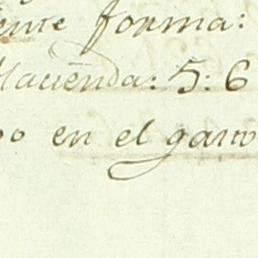 ente forma:
Hacienda: 5:6
en el garro